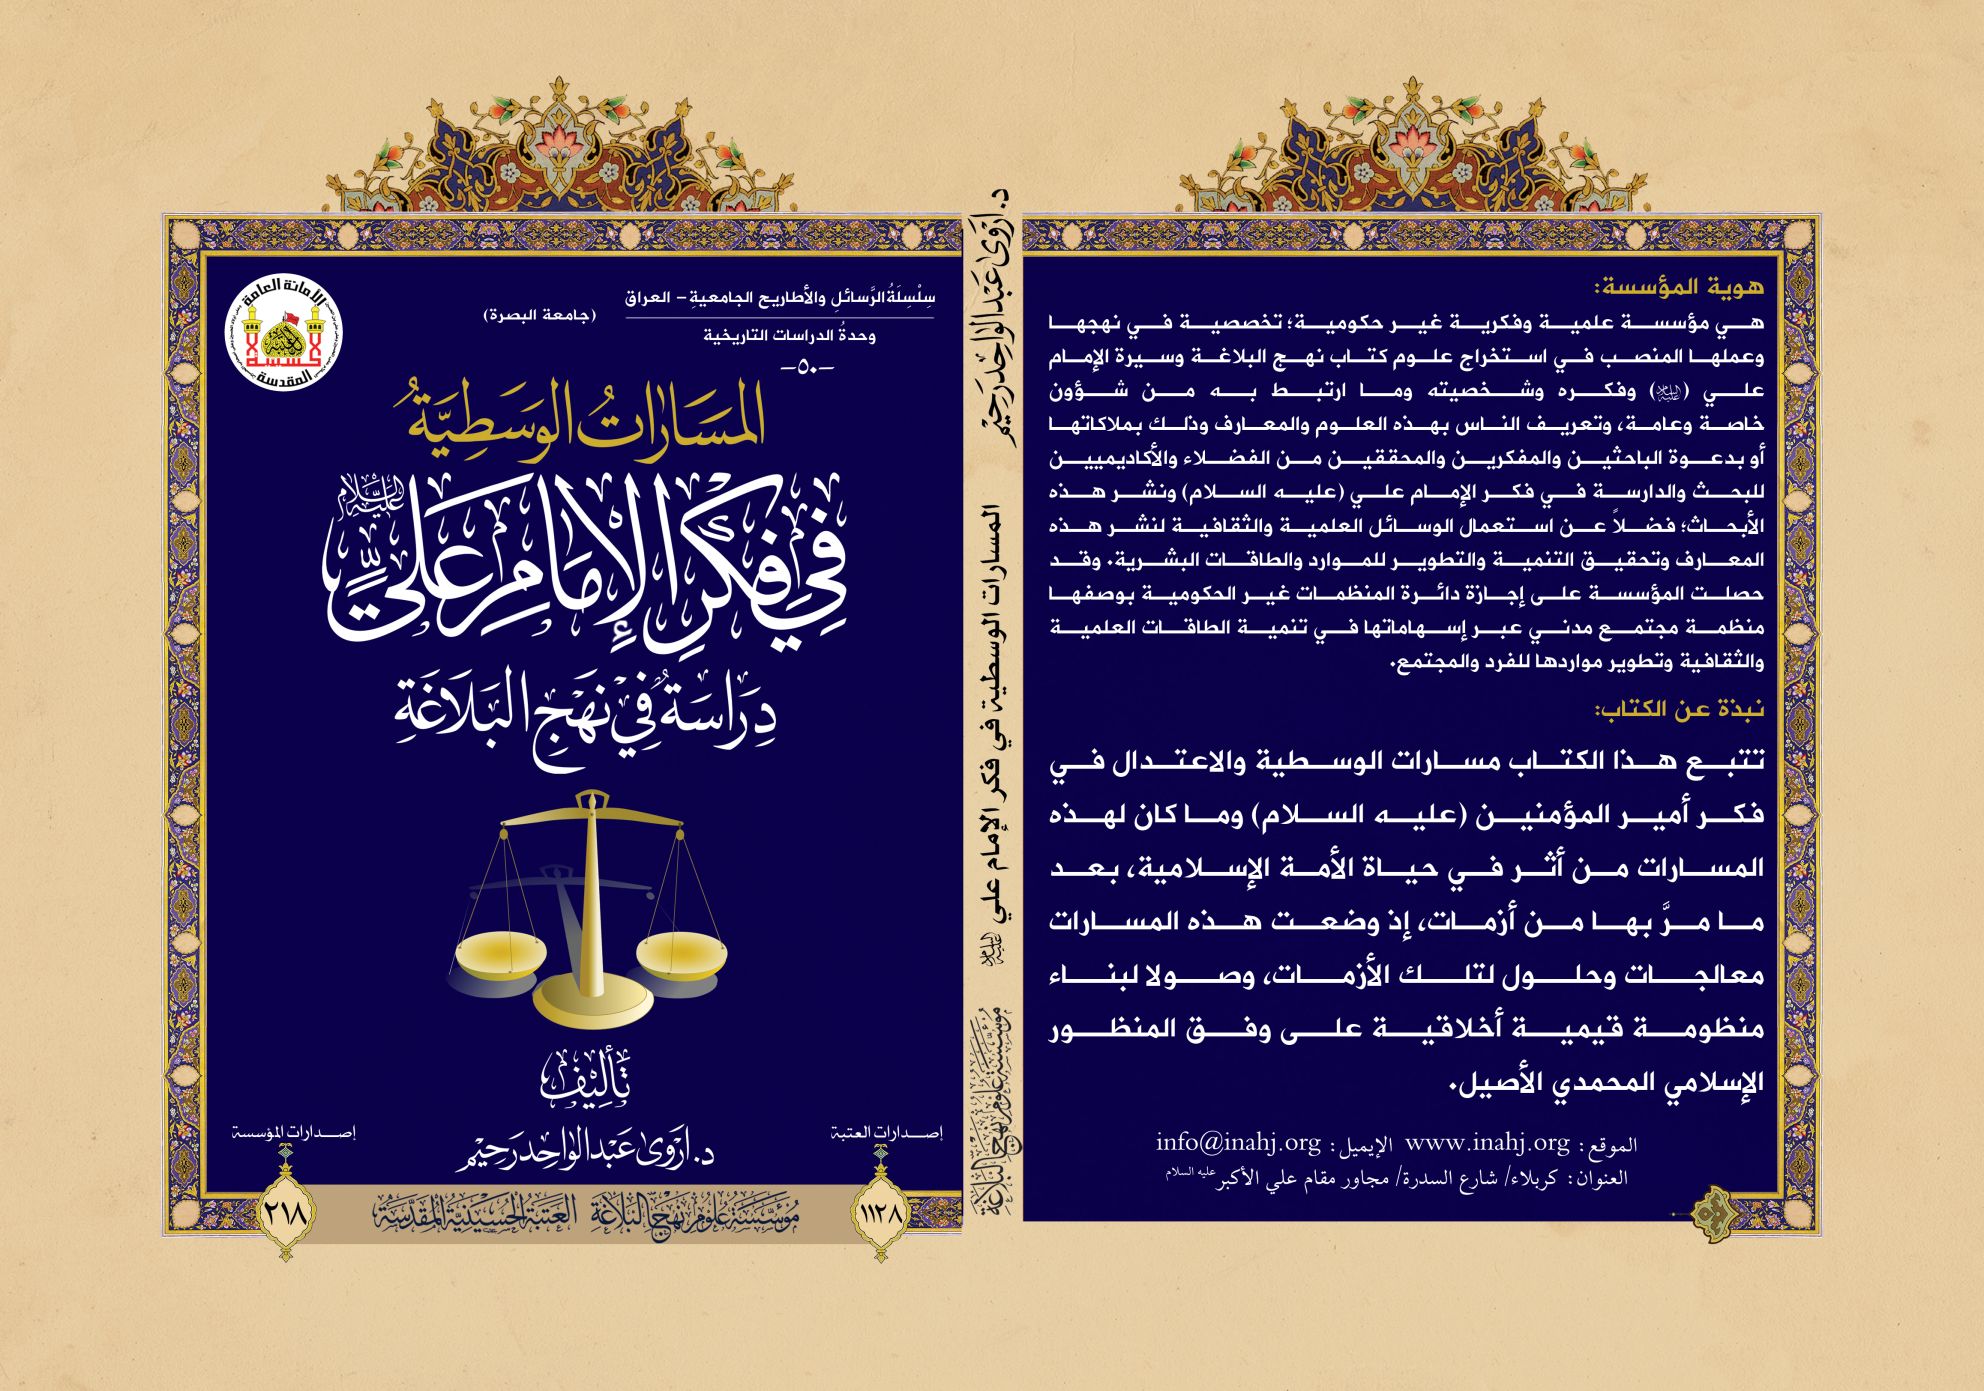 سِلْسِلَةُ الرَّسائلِ والأطاريحِ الجامعيةِ – العراق
(جامعة البصرة)
وحدةُ الدراسات التاريخية
–٥٠–
الأمانة العامة
المقدسة
المَسَارَاتُ الوَسَطِيَّةُ
فِي فِكْرِ الإِمَامِ عَلِيٍّ عَلَيْهِ السَّلَام
دِرَاسَةٌ فِي نَهْجِ البَلَاغَةِ
تَأليف
د. اَرْوَى عَبْد الوَاحِد رَحِيْم
إصدارات العتبة
١١٢٨
إصدارات المؤسسة
٢١٨
مُؤَسَّسَةُ عُلُومِ نَهْجِ البَلَاغَةِ العَتَبَةُ الحُسَيْنِيَّةُ المُقَدَّسَةُ
د. اَرْوَى عَبْد الوَاحِد رَحِيْم
المسارات الوسطية في فكر الإمام علي عليه السلام
مُؤَسَّسَةُ عُلُومِ نَهْجِ البَلَاغَةِ
هوية المؤسسة:
هي مؤسسة علمية وفكرية غير حكومية؛ تخصصية في نهجها
وعملها المنصب في استخراج علوم كتاب نهج البلاغة وسيرة الإمام
علي (عليه السلام) وفكره وشخصيته وما ارتبط به من شؤون
خاصة وعامة، وتعريف الناس بهذه العلوم والمعارف وذلك بملاكاتها
أو بدعوة الباحثين والمفكرين والمحققين من الفضلاء والأكاديميين
للبحث والدارسة في فكر الإمام علي (عليه السلام) ونشر هذه
الأبحاث؛ فضلاً عن استعمال الوسائل العلمية والثقافية لنشر هذه
المعارف وتحقيق التنمية والتطوير للموارد والطاقات البشرية. وقد
حصلت المؤسسة على إجازة دائرة المنظمات غير الحكومية بوصفها
منظمة مجتمع مدني عبر إسهاماتها في تنمية الطاقات العلمية
والثقافية وتطوير مواردها للفرد والمجتمع.
نبذة عن الكتاب:
تتبع هذا الكتاب مسارات الوسطية والاعتدال في
فكر أمير المؤمنين (عليه السلام) وما كان لهذه
المسارات من أثر في حياة الأمة الإسلامية، بعد
ما مرَّ بها من أزمات، إذ وضعت هذه المسارات
معالجات وحلول لتلك الأزمات، وصولا لبناء
منظومة قيمية أخلاقية على وفق المنظور
الإسلامي المحمدي الأصيل.
الموقع: www.inahj.org الإيميل: info@inahj.org
العنوان: كربلاء/ شارع السدرة/ مجاور مقام علي الأكبر عليه السلام